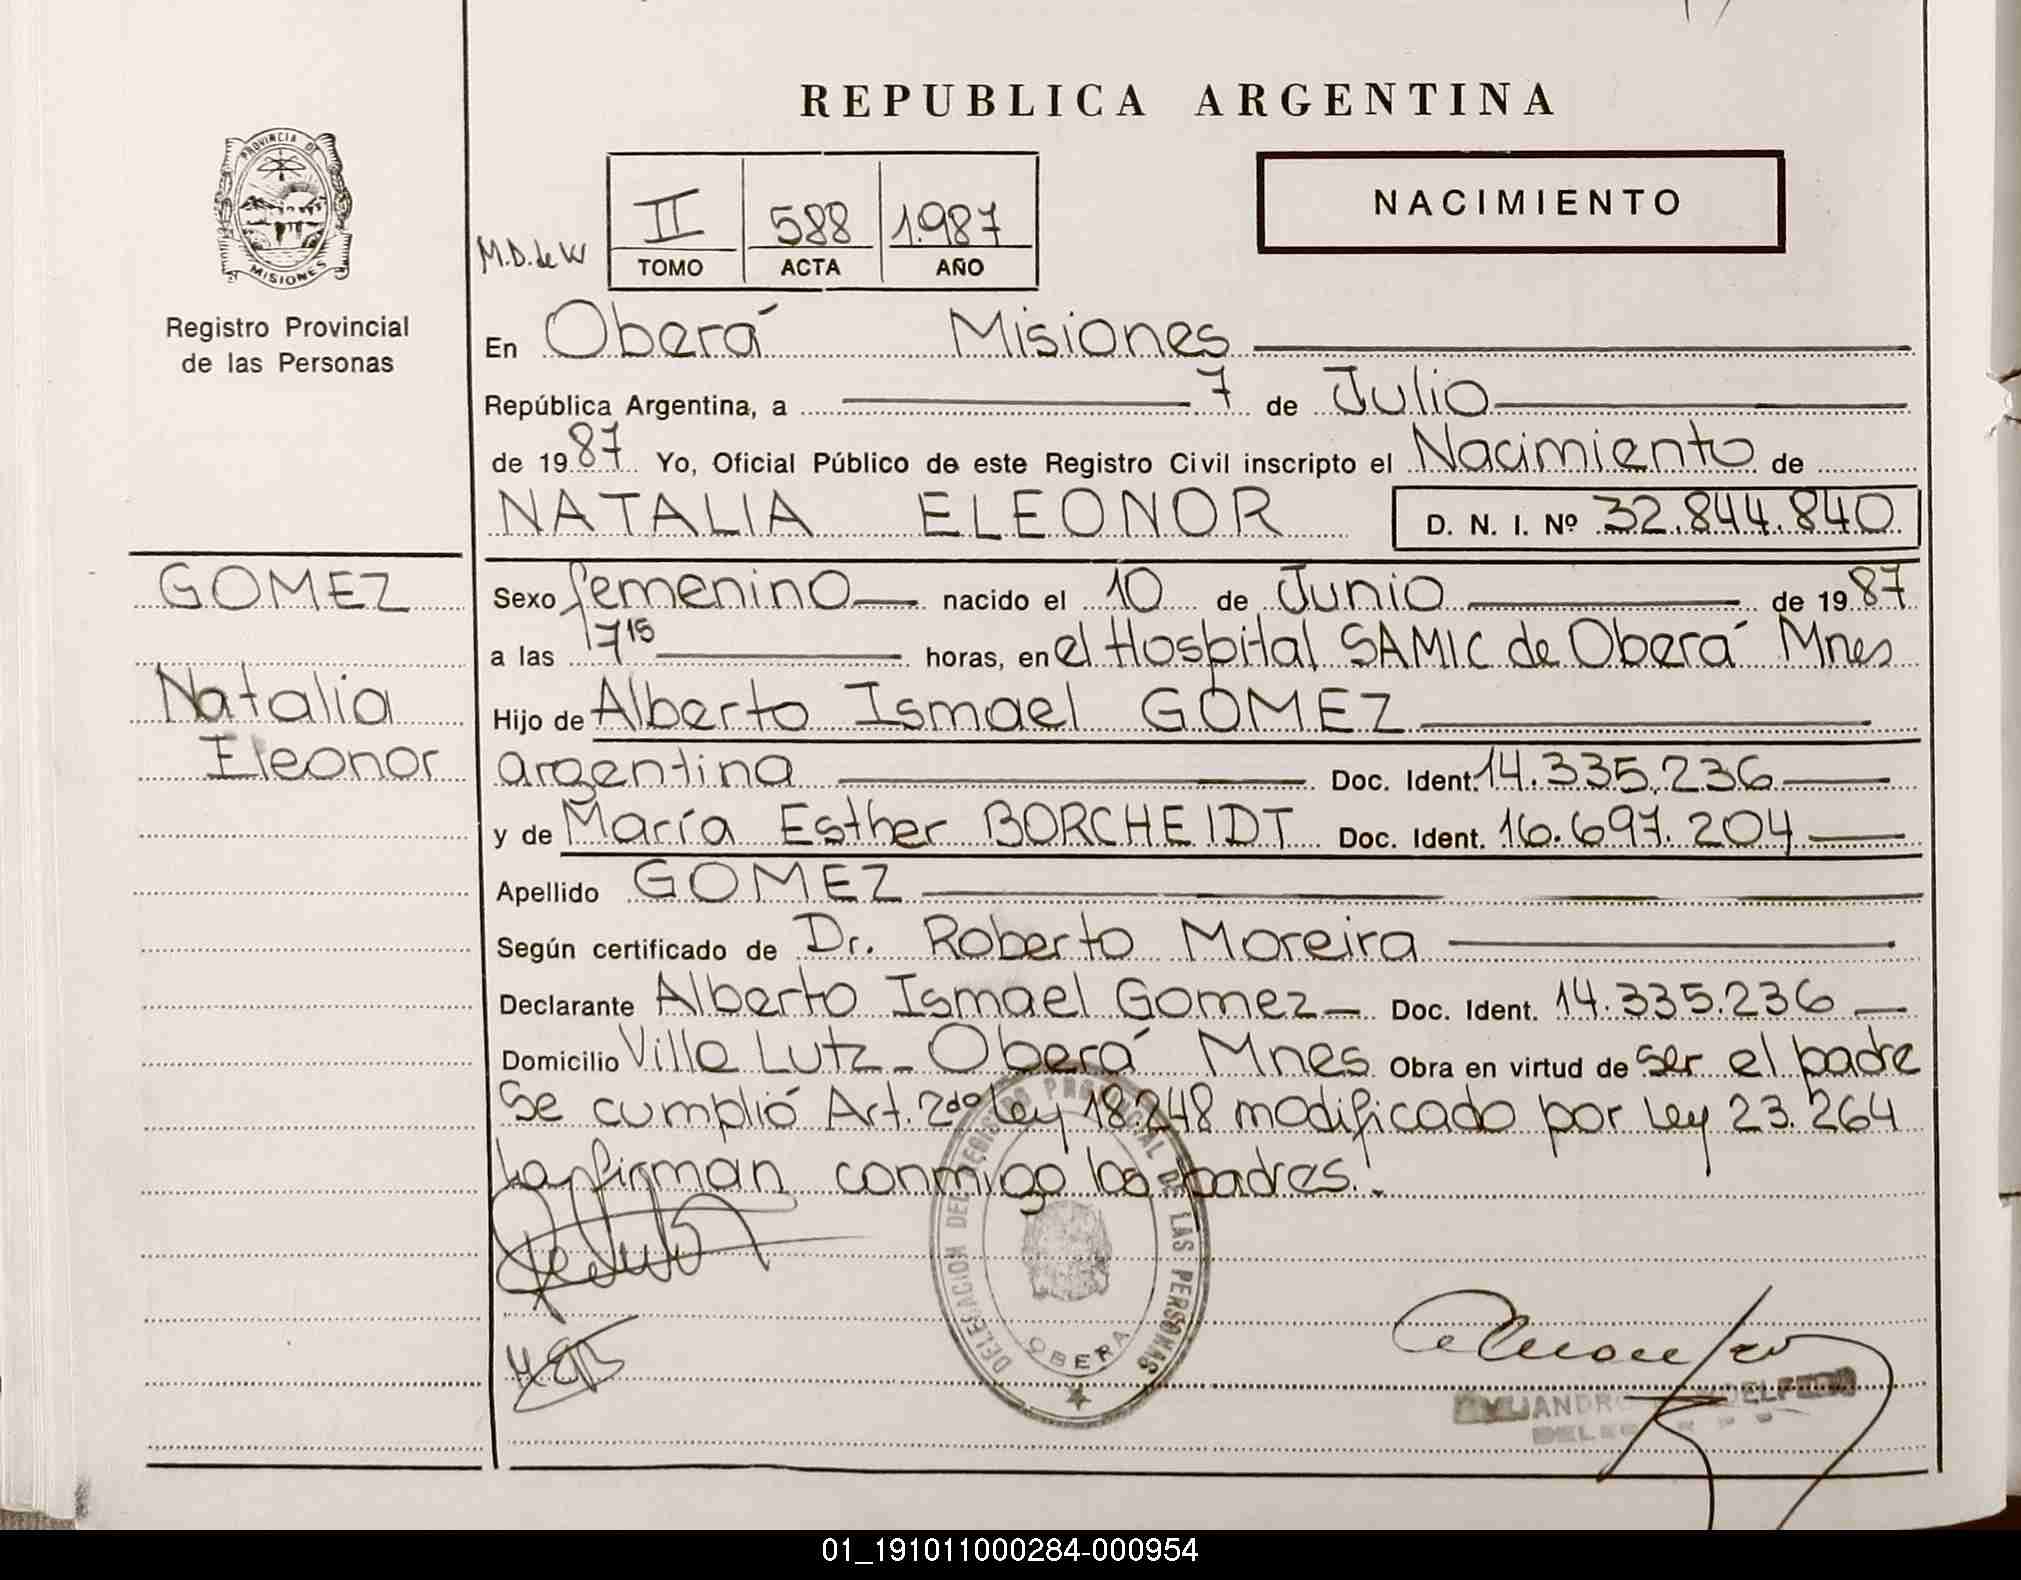 REPUBLICA ARGENTINA
PROVINCIA DE
MISIONES
Registro Provincial
de las Personas
NACIMIENTO
M.D. de W
II 588 1.987
TOMO ACTA AÑO
En Oberá Misiones
República Argentina, a 7 de Julio
de 1987 Yo, Oficial Público de este Registro Civil inscripto el Nacimiento de
NATALIA ELEONOR D. N. I. Nº 32.844.840
GOMEZ
Natalia
Eleonor
Sexo femenino nacido el 10 de Junio de 1987
a las 17 15 horas, en el Hospital SAMIC de Oberá Mnes
Hijo de Alberto Ismael GOMEZ
argentina Doc. Ident. 14.335.236
y de María Esther BORCHEIDT Doc. Ident. 16.697.204
Apellido GOMEZ
Según certificado de Dr. Roberto Moreira
Declarante Alberto Ismael Gomez Doc. Ident. 14.335.236
Domicilio Villa Lutz - Oberá Mnes Obra en virtud de ser el padre
Se cumplió Art. 2do ley 18.248 modificado por Ley 23.264
firman conmigo los padres.
DELEGACION DEL REGISTRO PROVINCIAL DE LAS PERSONAS
OBERA
01_191011000284-000954